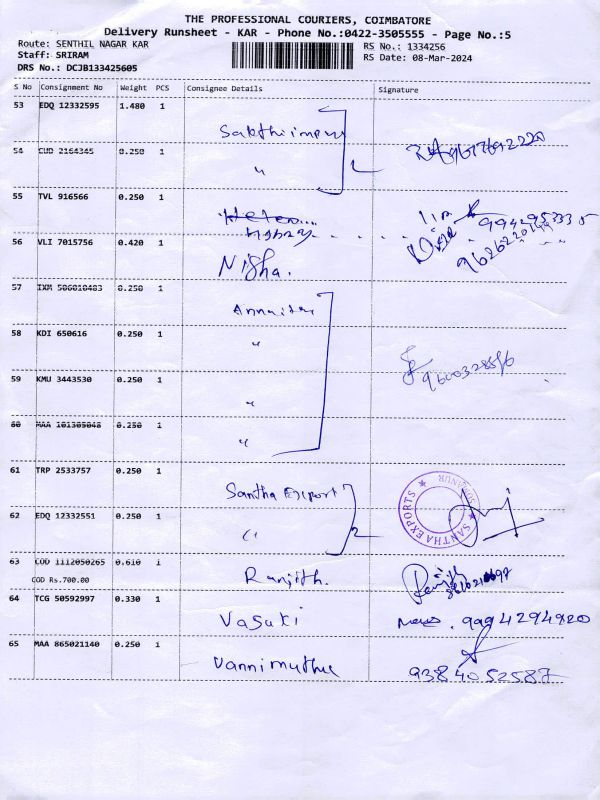 THE PROFESSIONAL COURIERS, COIMBATORE
Delivery Runsheet - KAR - Phone No.:0422-3505555 - Page No.:5
Route: SENTHIL NAGAR KAR RS No.: 1334256
Staff: SRIRAM RS Date: 08-Mar-2024
DRS No.: DCJB133425605
S No Consignment No Weight PCS Consignee Details Signature
53 EDQ 12332595 1.480 1
54 CUD 2164345 0.250 1
"
55 TVL 916566 0.250 1
9942953335
56 VLI 7015756 0.420 1 Nisha.
57 IXM 506010483 0.250 1
58 KDI 650616 0.250 1 "
59 KMU 3443530 0.250 1
"
60 MAA 101305048 0.250 1
"
61 TRP 2533757 0.250 1
Santha Export SANTHA EXPORTS
62 EDQ 12332551 0.250 1
"
63 COD 1112050265 0.610 1 Ranjith.
COD Rs.700.00
64 TCG 50592997 0.330 1
Vasuki 9994294920
65 MAA 865021140 0.250 1
Vannimuthu 9384052587